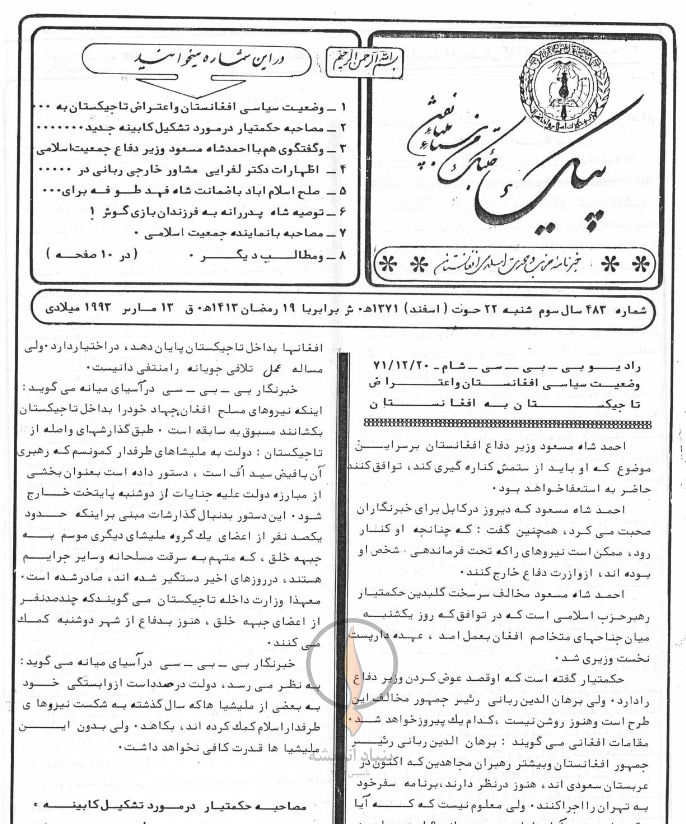 بسم الله الرحمن الرحیم
در این شماره میخوانید
۱ ــ وضعیت سیاسی افغانستان واعتراض تاجیکستان به ۰۰۰
۲ ــ مصاحبه حکمتیار درمورد تشکیل کابینه جدید ۰۰۰۰۰۰۰
۳ ــ وگفتگوی هم بااحمدشاه مسعود وزیر دفاع جمعیت اسلامی
۴ ــ اظهارات دکتر لفرایی مشاور خارجی ربانی در ۰۰۰۰۰
۵ ــ صلح اسلام اباد باضمانت شاه فهد طوفه برای ۰۰۰
۶ ــ توصیه شاه پدررانه به فرزندان بازی گوش !
۷ ــ مصاحبه بانماینده جمعیت اسلامی ۰
۸ ــ ومطالب دیگر ۰ ( در ۱۰ صفحه )
پیام
خبرنامه حزب وحدت اسلامی افغانستان
شماره ۴۸۳ سال سوم شنبه ۲۲ حوت ( اسفند ) ۱۳۷۱ه۰ ش برابربا ۱۹ رمضان ۱۴۱۳ه۰ ق ۱۳ مارس ۱۹۹۳ میلادی
رادیو بی ــ بی ــ سی ــ شام ــ ۷۱/۱۲/۲۰
وضعیت سیاسی افغانستان واعتراض
تاجیکستان به افغانستان
احمد شاه مسعود وزیر دفاع افغانستان برسراین
موضوع که او باید از سمتش کناره گیری کند ، توافق کنند
حاضر به استعفا خواهد بود۰
احمد شاه مسعود که دیروز درکابل برای خبرنگاران
صحبت می کرد ، همچنین گفت : که چنانجه او کنار
رود ، ممکن است نیروهای راکه تحت فرماندهی شخص او
بوده اند ، ازوزارت دفاع خارج کنند۰
احمد شاه مسعود مخالف سرسخت گلبدین حکمتیار
رهبرحزب اسلامی است که در توافق که روز یکشنبه
میان جناحهای متخاصم افغان بعمل امد ، عهده دارپست
نخست وزیری شد۰
حکمتیار گفته است که اوقصد عوض کردن وزیر دفاع
رادارد۰ ولی برهان الدین ربانی رئیس جمهور مخالف این
طرح است وهنوز روشن نیست ، کدام یك پیروزخواهد شد۰
مقامات افغانی می گویند : برهان الدین ربانی رئیس
جمهور افغانستان وبیشتر رهبران مجاهدین که اکنون در
عربستان سعودی اند ، هنوز درنظر دارند ، برنامه سفرخود
به تهران رااجراکنند۰ ولی معلوم نیست که که آیا
افغانها بداخل تاجیکستان پایان دهد ، دراختیاردارد۰ولی
مساله عمل تلافی جویانه رامنتفی دانیست۰
خبرنگار بی ــ بی ــ سی درآسیای میانه می گوید :
اینکه نیروهای مسلح افغان جهاد خودرا بداخل تاجیکستان
بکشانند مسبوق به سابقه است ۰ طبق گذارشهای واصله از
تاجیکستان : دولت به ملیشاهای طرفدار کمونسم که رهبری
آن بافیض سید اُف است ، دستور داده است بعنوان بخشی
از مبارزه دولت علیه جنایات از دوشنبه پایتخت خارج
شود۰ این دستور بدنبال گذارشات مبنی براینکه حدود
یکصد نفر از اعضای یك گروه ملیشای دیگری موسم به
جبهه خلق ، که متهم به سرقت مسلحانه وسایر جرایم
هستند ، درروزهای اخیر دستگیر شده اند ، صادرشده است۰
معهذا وزارت داخله تاجیکستان می گویندکه چندصدنفر
از اعضای جبهه خلق ، هنوز بدفاع از شهر دوشنبه کمك
می کنند۰
خبرنگار بی ــ بی ــ سی درآسیای میانه می گوید :
به نظر می رسد ، دولت درصدداست ازوابستگی خود
به بعضی از ملیشیا هاکه سال گذشته به شکست نیروهای
طرفداراسلام کمك کرده اند ، بکاهد۰ ولی بدون این
ملیشیا ها قدرت کافی نخواهد داشت۰
مصاحبه حکمتیار درمورد تشکیل کابینه ء
بنیاد اندیشه